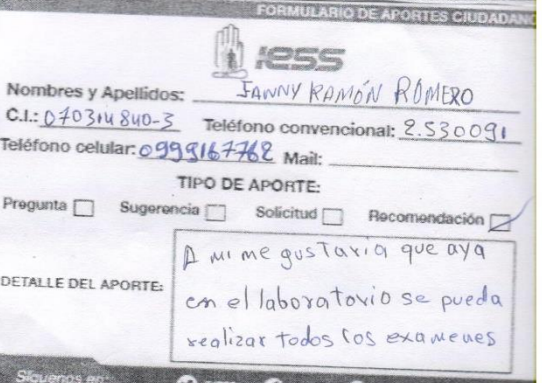 FORMULARIO DE APORTES CIUDADANO
IESS
Nombres y Apellidos: JANNY RAMÓN ROMERO
C.I.: 070314840-3 Teléfono convencional: 2.530091
Teléfono celular: 0999167762 Mail:
TIPO DE APORTE:
Pregunta Sugerencia Solicitud Recomendación
A mi me gustaria que aya
DETALLE DEL APORTE: en el laboratorio se pueda
realizar todos los examenes
Síguenos en: